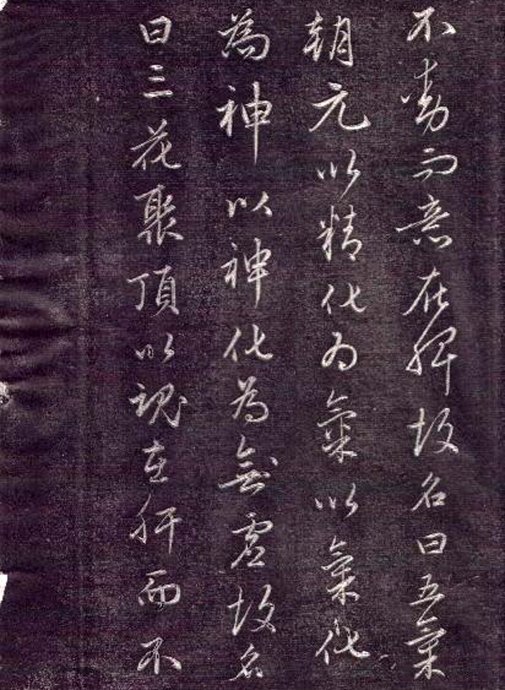 不動而意在脾故名曰五氣
朝元以精化為氣以氣化
為神以神化為虛故名
曰三花聚頂以魂在肝而不